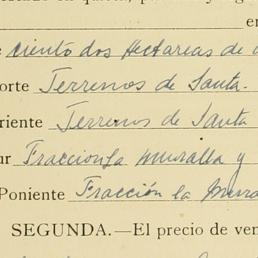 en
ciento dos Hectareas de
orte Terrenos de Santa.
riente Terrenos de Santa
ur Fracción La Muralla y
Poniente Fracción la Mura
SEGUNDA.—El precio de ven